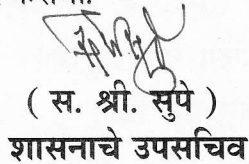 ( स. श्री. सुपे )
शासनाचे उपसचिव